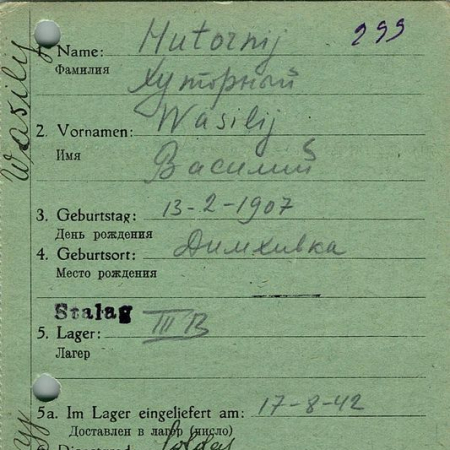 299
1. Name: Hutornij
Фамилия Хуторный
2. Vornamen: Wasilij
Имя Василий
3. Geburtstag: 13-2-1907
День рождения
4. Geburtsort: Димхивка
Место рождения
Stalag
5. Lager: III B
Лагер
5a. Im Lager eingeliefert am: 17-8-42
Доставлен в лагер (число)
Wasily